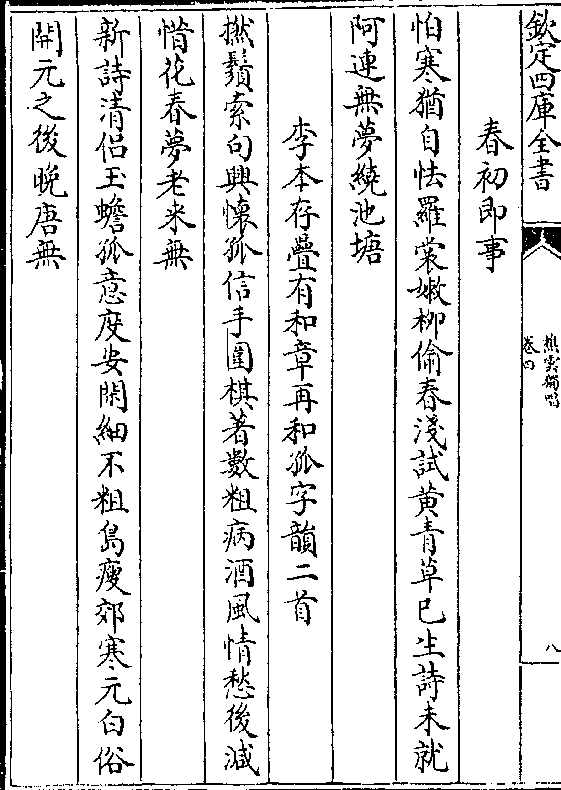 欽定四庫全書
樵雲獨唱
卷四
八
春初即事
怕寒猶自怯羅裳嫩柳偷春淺試黄青草已生詩未就
阿連無夢繞池塘
李本存疊有和章再和孤字韻二首
撚鬚索句興懷孤信手圍棋著數粗病酒風情愁後減
惜花春夢老来無
新詩清侣玉蟾孤意度安閑細不粗島瘦郊寒元白俗
開元之後晩唐無